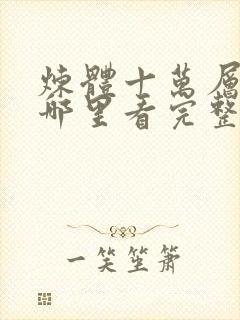 煉體十萬層
哪里看完整
一笑坐簫